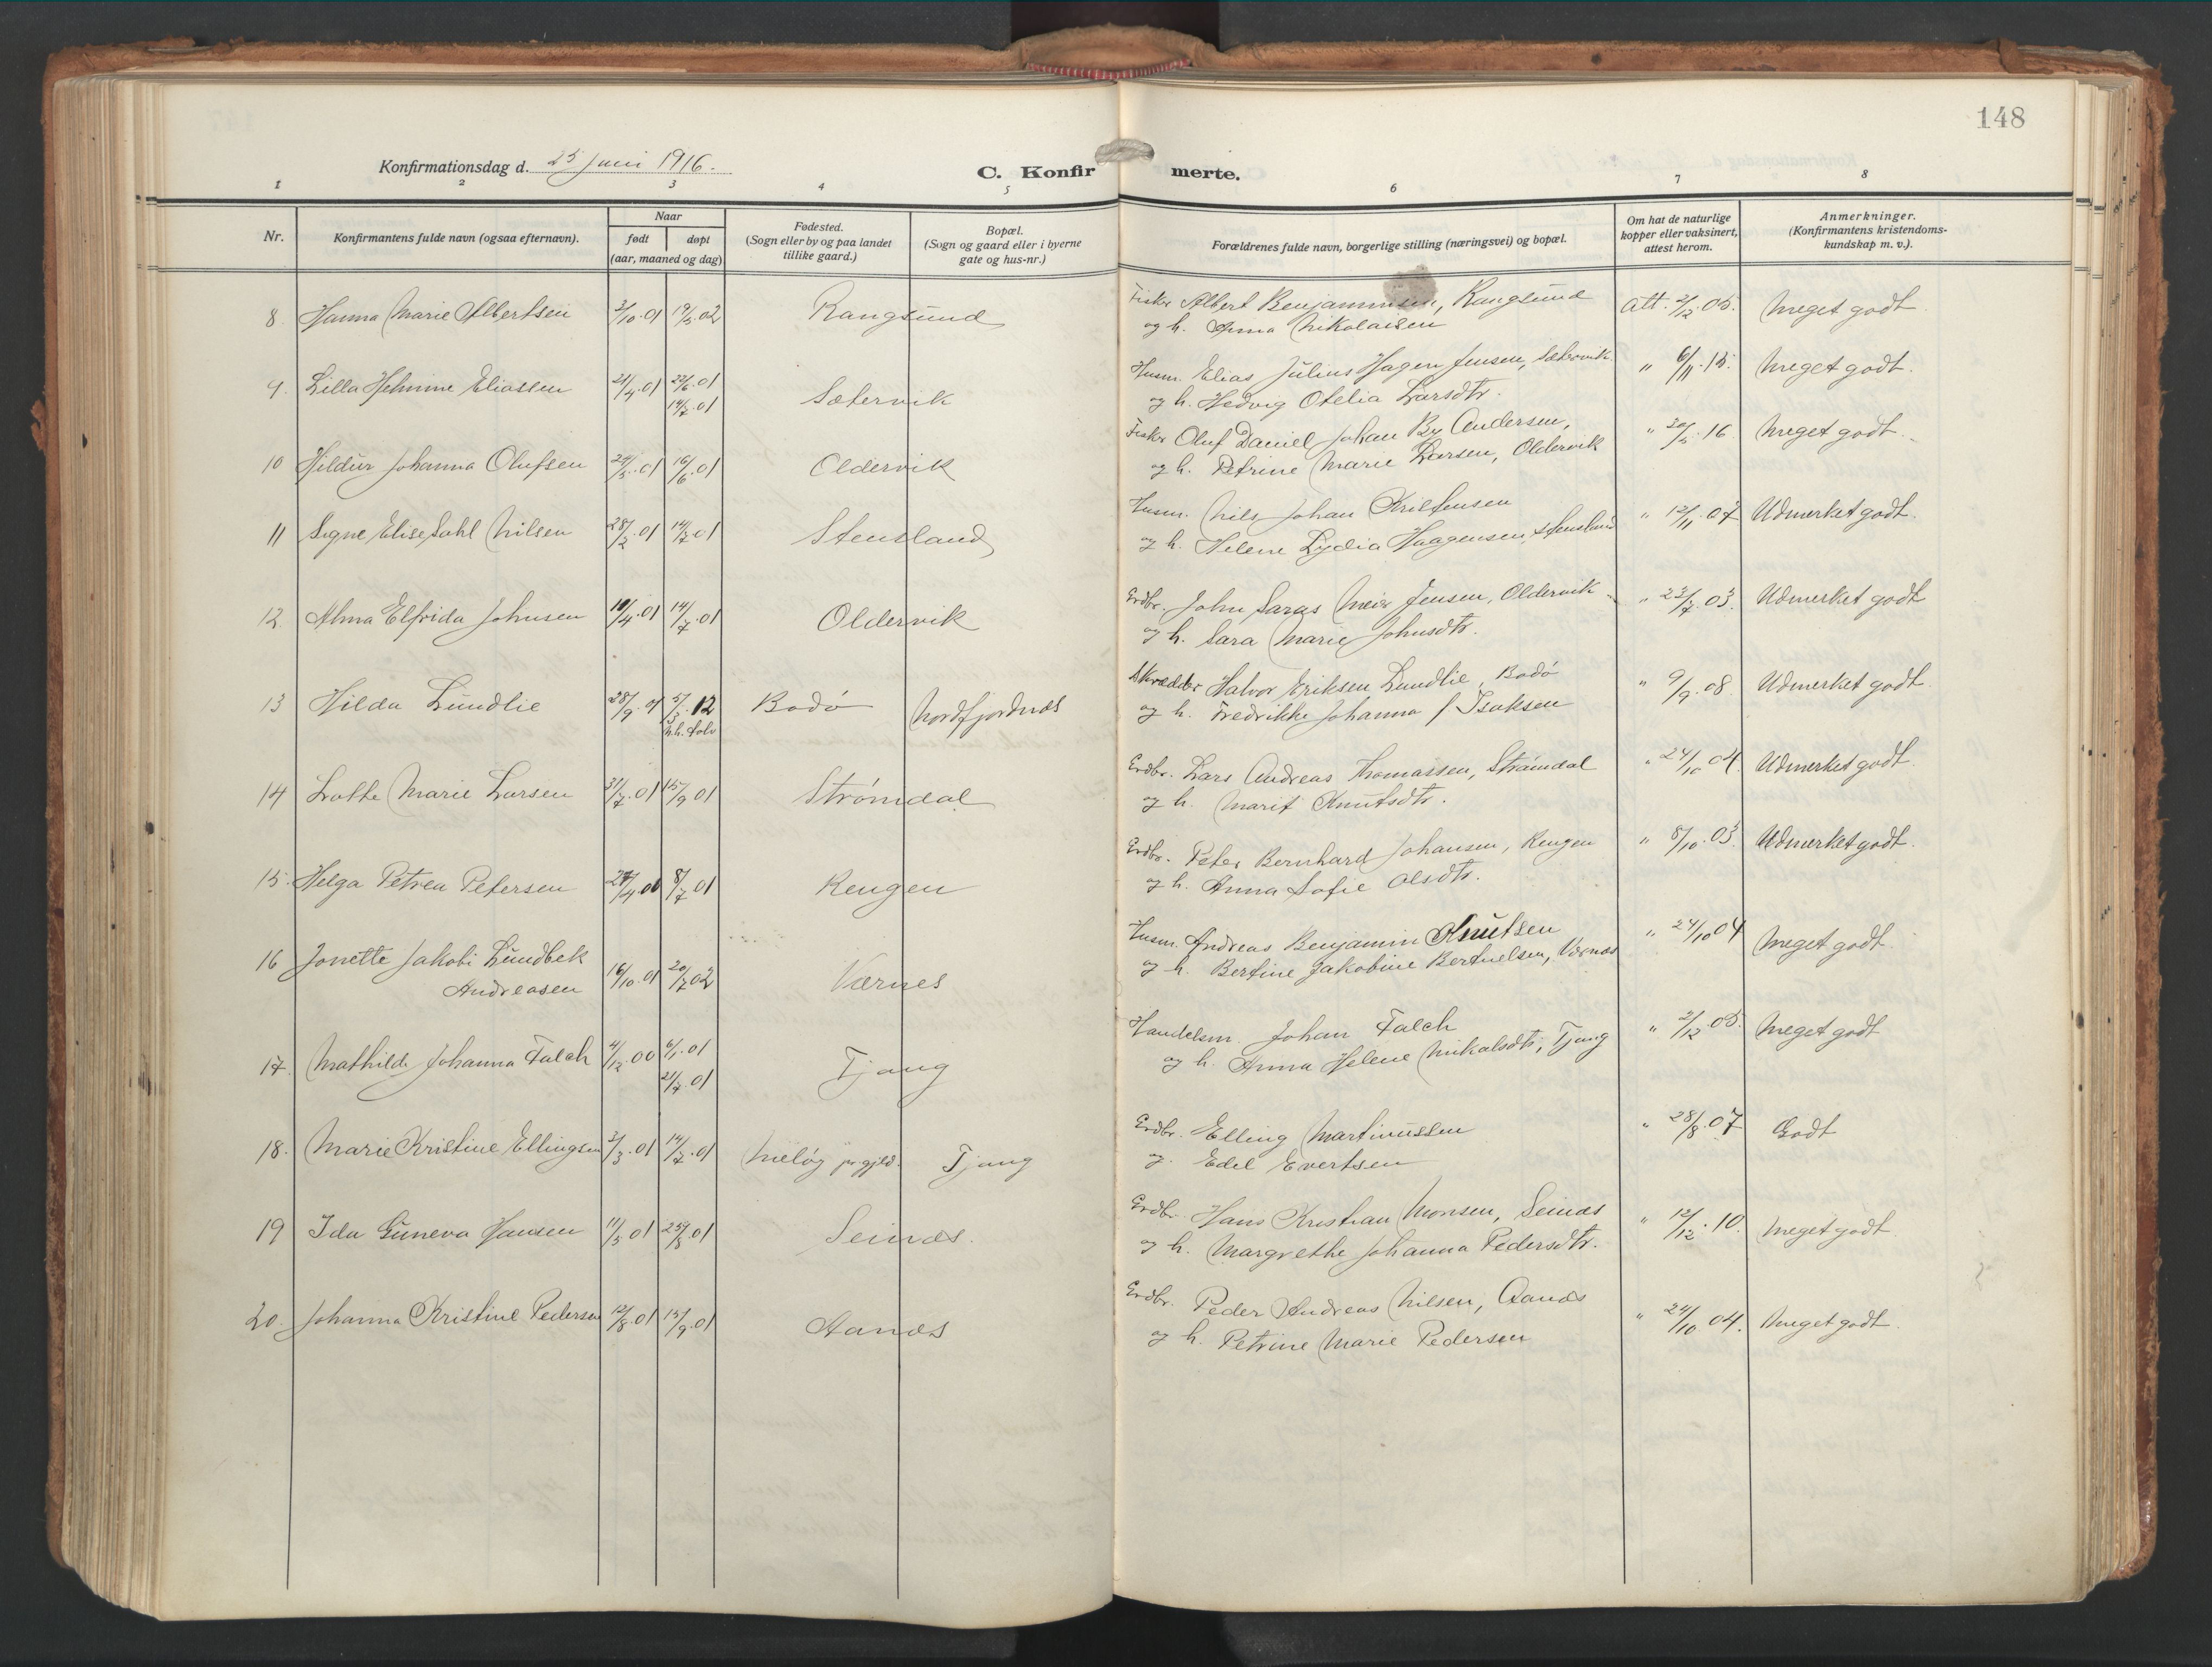 148
Konfirmationsdag d. 25 juni 1916.
C. Konfirmerte.
1 2 3 4 5 6 7 8
Nr. Konfirmantens fulde navn (ogsaa efternavn). Naar født døpt (aar, maaned og dag) Fødested. (Sogn eller by og paa landet tillike gaard.) Bopæl. (Sogn og gaard eller i byerne gate og hus-nr.) Forældrenes fulde navn, borgerlige stilling (næringsvei) og bopæl. Om hat de naturlige kopper eller vaksinert, attest herom. Anmerkninger. (Konfirmantens kristendomskundskap m. v.).
8. Hanna Marie Albertsen 3/10.01 19/5.02 Rangsund Fisker Albert Benjaminsen, Rangsund att. 2/12.05. Meget godt
og h. Anna Nikolaisen
9. Lilla Helmine Eliassen 21/4.01 22/6.01 Sætervik Husm. Elias Julius Hagen Jensen, Sætervik " 6/11.15. Meget godt.
14/7.01 og h. Hedvig Otelia Larsdtr.
10 Hildur Johanna Olufsen 24/5.01 16/6.01 Oldervik Fisker Oluf Daniel Johan By Andersen, " 20/5.16 Meget godt.
og h. Petrine Marie Larsen, Oldervik
11 Signe Elise Dahl Nilsen 28/2.01 14/7.01 Stensland Husm. Nils Johan Kristensen " 12/11.07 Udmerket godt.
og h. Helene Lydia Haagensen, Stensland
12. Alma Elfrida Johnsen 10/4.01 14/7.01 Oldervik Erdbr. John Saras Meier Jensen, Oldervik " 23/7.03. Udmerket godt
og h. Sara Marie Johnsdtr.
13 Hilda Lundlie 28/9.01 5/3.12 Bodø Nordfjordnes Skredder Halvor Eriksen Lundlie, Bodø " 9/9.08. Udmerket godt
og h. Fredrikke Johanna f Isaksen
14 Lotte Marie Larsen 31/7.01 15/9 01 Strømdal Erdbr. Lars Andreas Thomassen, Strømdal " 24/10 04. Udmerket godt.
og h. Marit Knutsdtr.
15. Helga Petrea Petersen 8/7 01 Rengen Erdbr. Peter Bernhard Johansen, Rengen " 8/10.03. Udmerket godt.
og h. Anna Sofie Olsdtr.
16 Jonette Jakobi Lundbek 16/10.01 20/7 02 Værnes Husm. Andreas Benjamin Knutsen " 24/10 04 Meget godt
Andreasen og h. Bertine Jakobine Bertuelsen, Værnes
17. Mathilde Johanna Falch 4/12.00 6/1.01 Tjang Handelsm. Johan Falch " 2/12 05. Meget godt
21/7.01 og h. Anna Helene Mikalsdtr, Tjang
18. Marie Kristine Ellingsen 3/3.01 14/7.01 Meløy pr.gjeld. Tjang Erdbr. Elling Martinussen " 28/8.07 Godt
og. Edel Evertsen
19 Ida Guneva Hansen 11/5 01 25/8.01 Seines. Erdbr. Hans Kristian Monsen, Seines " 12/12.10. Meget godt.
og h. Margrethe Johanna Pedersdtr.
20. Johanna Kristine Pedersen 12/8.01 15/9.01 Aanes Erdbr. Peder Andreas Nilsen, Aanes " 24/10 04. Meget godt.
og h. Petrine Marie Pedersen